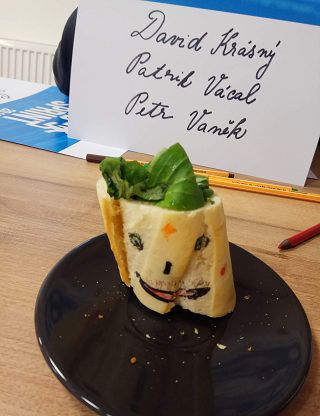 David Krásný
Patrik Vácal
Petr Vaněk